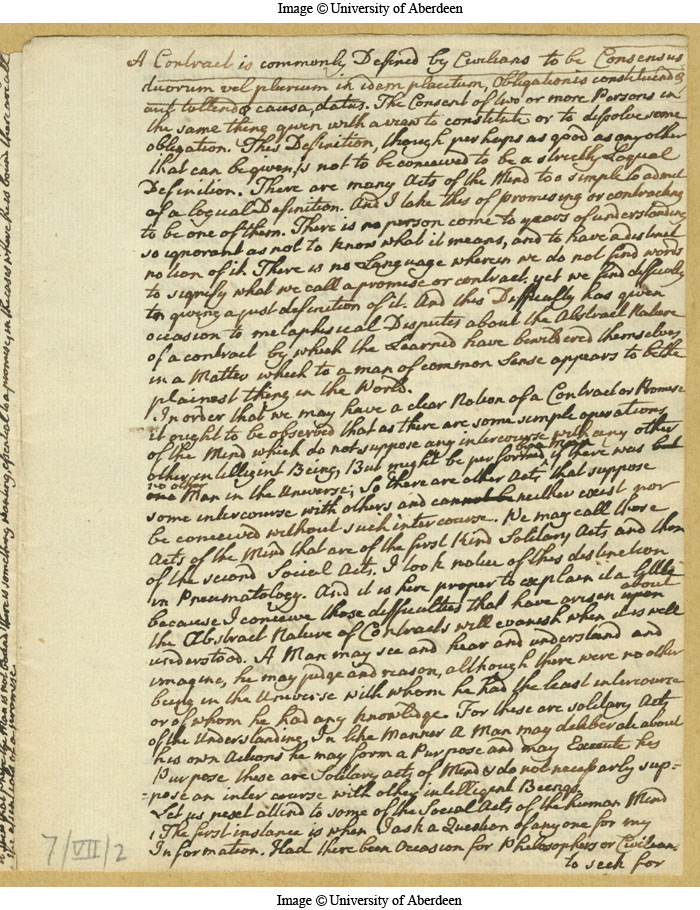 Image © University of Aberdeen
A Contract is commonly Defined by Civilians to be Consensus
duorum vel plurium in idem placitum, Obligationis constituendæ
aut tollendæ causa, datus. The Consent of two or more Persons in
the same thing given with a view to constitute or to dissolve some
obligation. This Definition, though perhaps as good as any other
that can be given, is not to be conceived to be a strictly Logical
Definition. There are many Acts of the Mind too simple to admit
of a logical Definition. And I take this of promising or contracting
to be one of them. There is no person come to years of understanding
so ignorant as not to know what it means, and to have a distinct
notion of it. There is no Language wherein we do not find words
to signify what we call a promise or contract. yet we find difficulty
in giving a just definition of it. And this Difficulty has given
occasion to metaphisical Disputes about the Abstract Nature
of a contract by which the Learned have bewildered themselves
in a Matter which to a man of common Sense appears to be the
plainest thing in the World.
In order that we may have a clear Notion of a Contract or Promise
it ought to be observed that as there are some simple operations
of the Mind which do not suppose any intercourse with any other
other intelligent Being, But might be performed if there was but
no other
one Man in the Universe; So there are other Acts that suppose
some intercourse with others and cannot be neither exist nor
be conceived without such intercourse. We may call those
Acts of the Mind that are of the first Kind Solitary Acts and them
of the second Social Acts. I took notice of this distinction
in Pneumatology. And it is here proper to explain it a little
because I conceive those difficulties that have arisen upon
about
the Abstract Nature of Contracts will evanish when it is well
understood. A Man may see and hear and understand and
imagine, he may judge and reason, although there were no other
being in the Universe with whom he had the least intercourse
or of whom he had any knowledge. For these are solitary Acts
of the Understanding, In like Manner A Man may deliberate about
his own Actions he may form a Purpose and may Execute his
Purpose these are Solitary acts of Mind & do not necessarly sup=
=pose an intercourse with other intelligent Beings
Let us next attend to some of the Social Acts of the human Mind
The first instance is when I ask a Question of any one for my
Information. Had there been Occasion for Philosophers or Civilians
to seek for
7/VII/2
Image © University of Aberdeen